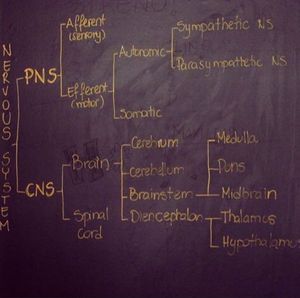 NERVOUS SYSTEM
PNS
Afferent
(sensory)
Efferent
(motor)
Autonomic
Sympathetic NS
Parasympathetic NS
Somatic
CNS
Brain
Cerebrum
Cerebellum
Brainstem
Medulla
Pons
Midbrain
Diencephalon
Thalamus
Hypothalamus
Spinal
cord